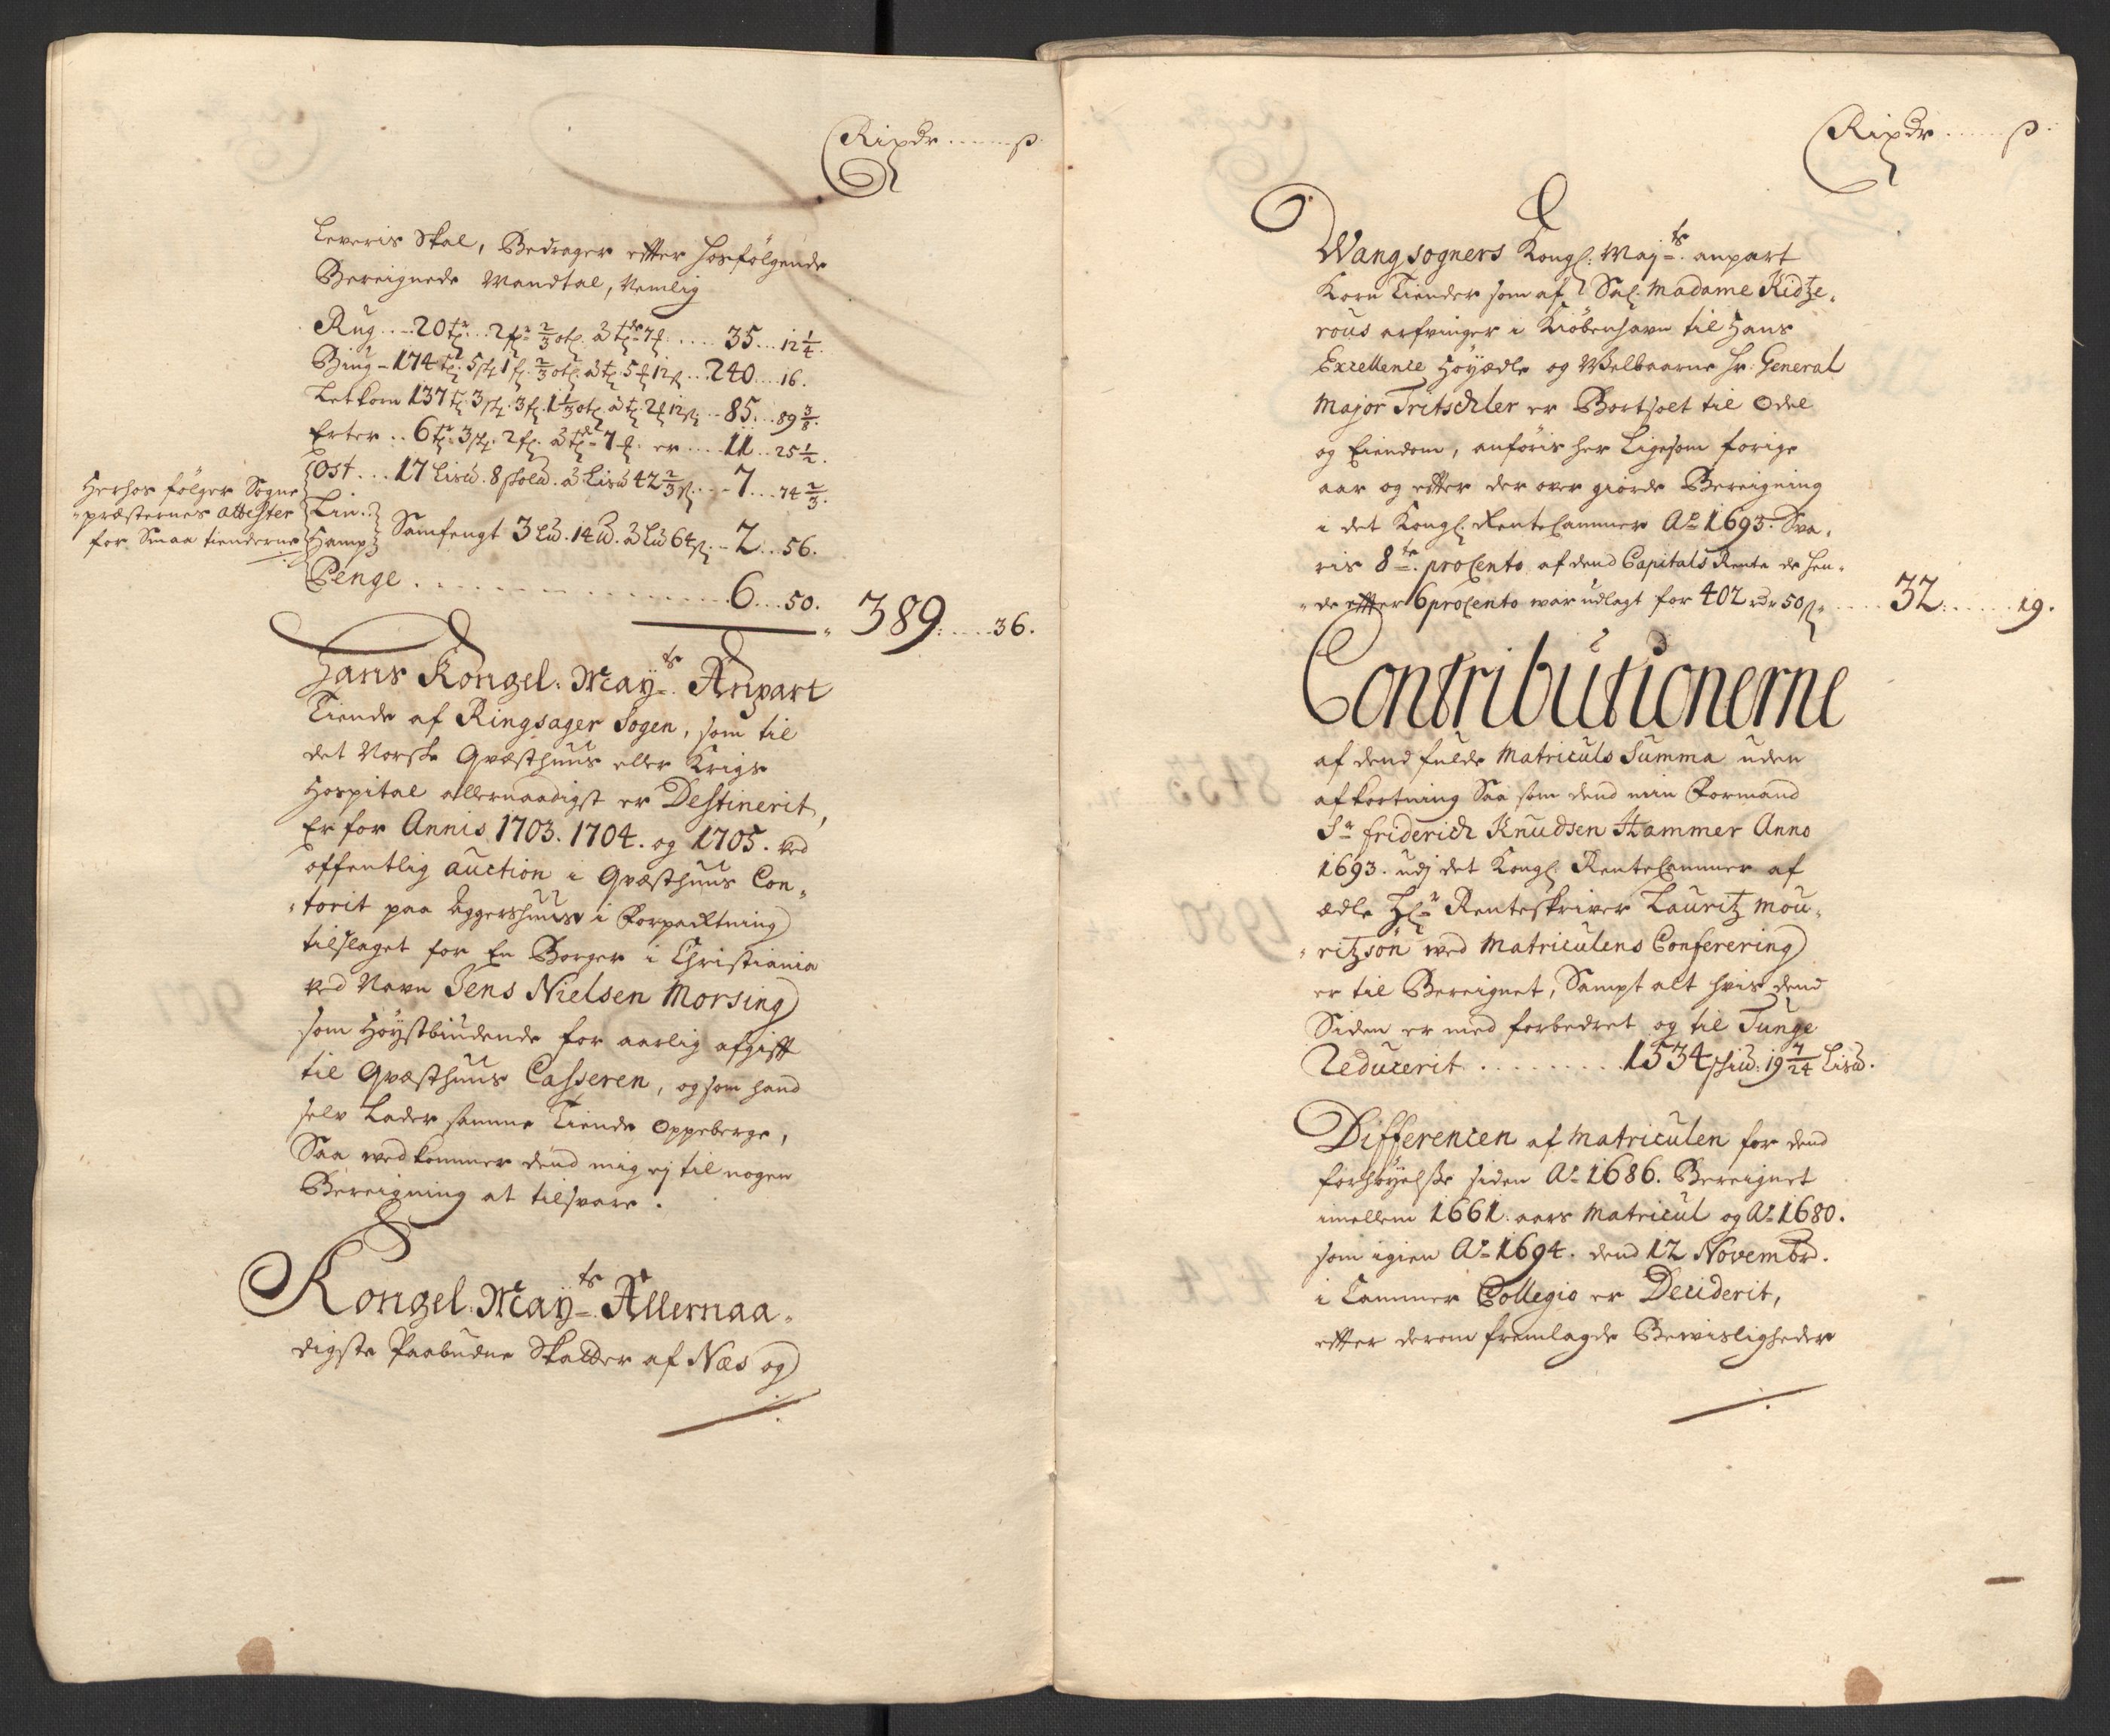 Rixdr ..... ß.
Leveris skal, Bedrager efter hosfölgende
Beregnede Mandtal, Nemlig
Rug ... 20 tr ... 2 fr 2/3 ot. à tde 7 ... 35 ... 12 1/4.
Biug - 174 t. 5 sk 1 f. 2/3 ot. à t. 5 12 ß ... 240 ... 16.
Letkorn 137 t. 3 sk. 3 f. 1 1/3 ot. à t. 2 12 ß ... 85 ... 89 3/8.
Erter .. 6 t. 3 sk. 2 f. à tde 7 er ... 11 .. 25 1/2.
Ost ... 17 Lisd. 8 Skold. à Lisd 42 2/3 ß ... 7 ... 74 2/3.
Herhos fölger Sogne
præsternes attester
for Smaa tienderne
Lin.
Hamp
Samfengt 3 Ld. 14 d. à Ld 64 ß. - 2 .. 56.
Penge . . . . . . . 6 ... 50.
389: .... 36.
Hans Kongel: Mayts Anpart
Tiende af Ringsager Sogen, som til
det Norske Qvæsthuus eller Krigs
Hospital allernaadigst er Destinerit,
Er for Annis 1703. 1704. og 1705. ved
offentlig auction i Qvæsthuus Con-
torit paa Aggershuus i Forpachtning
tilslaget for En Borger i Christiania
ved Navn Jens Nielsen Morsing
som Höystbiudende for aarlig afgift
til Qvæsthuus Casseren, og som hand
selv Lader samme Tiende oppeberge,
Saa vedkommer dend mig ej til nogen
Beregning at tilsvare.
Kongel: Mayts Allernaa-
digste Paabudne Skatter af Næs og
Rixdr ..... ß.
Wangsogners Kongl: Majts. anpart
Korn Tiender som af Sal. Madame Ridtze-
rous arfvinger i Kiöbenhavn til Hans
Excellence Höyædle og Welbaarne Hr: General
Major Tritschler er Bortsolt til Odel
og Eiendom, anföris her Ligesom forige
aar og efter der over giorde Bereigning
i det Kongl. RenteCammer Ao 1693. Sva-
ris 8te. proCento af dend Capitals Rente de hen-
de efter 6 proCento war udlagt for 402 rdr 50 ß ... 32: ..... 19.
Contributionerne
af dend fulde Matriculs Summa uden
afkortning Saa som dend min Formand
Sr Friderich Knudsen Hammer Anno
1693. udj det Kongl. RenteCammer af
ædle Hr Renteskriver Lauritz Mou-
ritzsön ved Matriculens Conferering
er til Bereignet, Sampt alt hvis dend
Siden er med forbedret og til Tunge
Reducerit . . . . . . . 1534 Skid: 19 7/24 Lisd.
Differencen af Matriculen for dend
forhöyelsse siden Ao 1686. Bereignet
imellem 1661. aars Matricul og Ao 1680.
som igien Ao 1694. dend 12 Novembr.
i Cammer Collegio er Deciderit,
efter derom fremlagde Bevisligheder